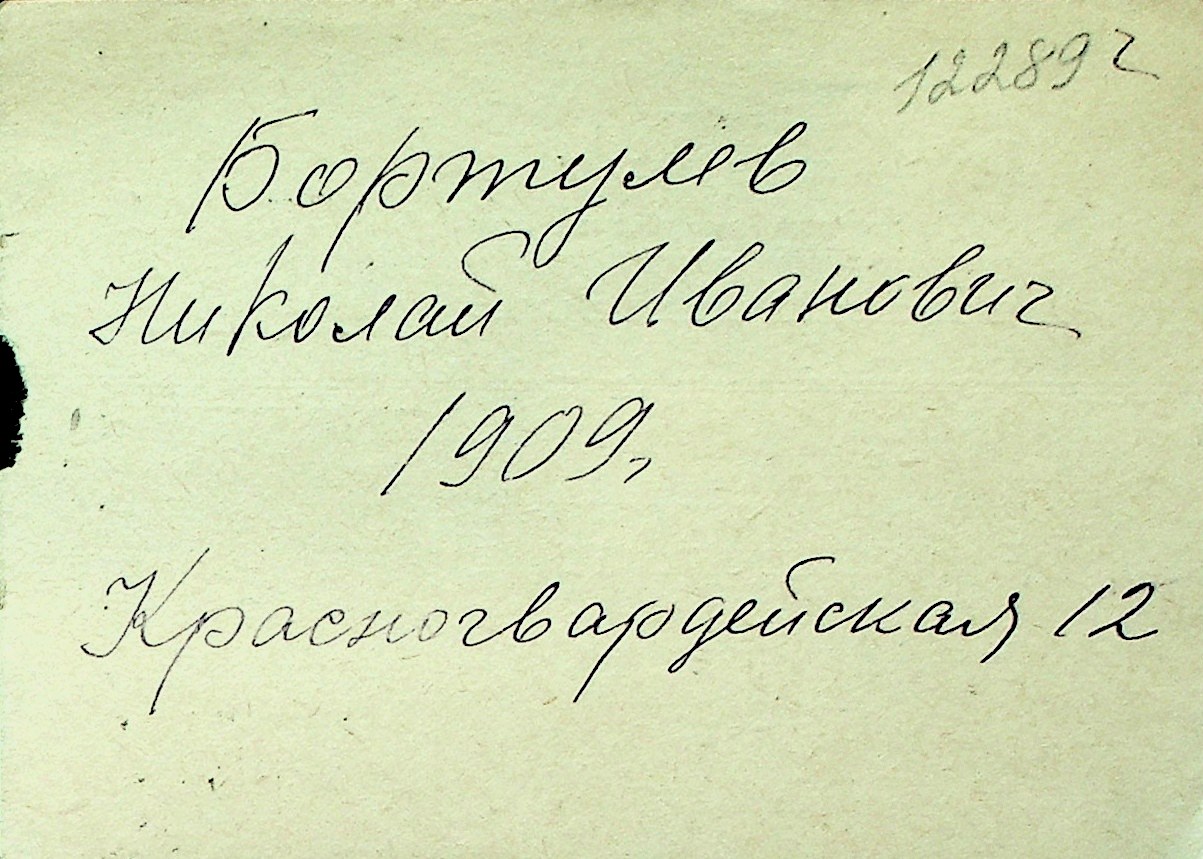 12289 ч
Бортулев
Николай Иванович
1909г.
Красногвардейская 12